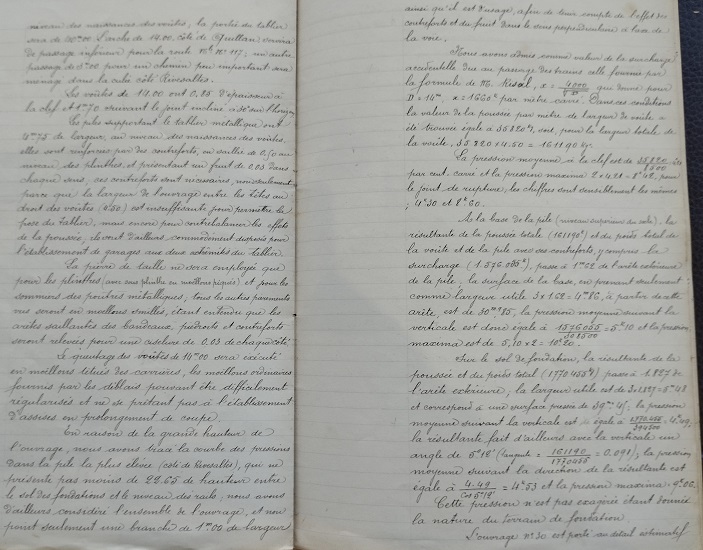 niveau des naissances des voûtes, la portée du tablier
sera de 20.00. L'arche de 14.00, côté de Quillan, servira
de passage inférieur pour la route Nle No 117; un autre
passage de 5m00 pour un chemin peu important sera
ménagé dans la culée côté Rivesaltes.
Les voûtes de 14.00 ont 0.85 d'épaisseur à
la clef et 1m70 suivant le joint incliné à 30° sur l'horizon.
Les piles supportant le tablier métallique ont
4m75 de largeur, au niveau des naissances des voûtes,
elles sont renforcées par des contreforts, en saillie de 0.50 au
niveau des plinthes, et présentant un fruit de 0.03 dans
chaque sens, ces contreforts sont nécessaires, non seulement
parce que la largeur de l'ouvrage entre les têtes au
droit des voûtes (4.50) est insuffisante pour permettre la
pose du tablier, mais encore pour contrebalancer les effets
de la poussée, ils sont d'ailleurs, commodément disposés pour
l'établissement de garages aux deux extrémités du tablier.
La pierre de taille ne sera employée que
pour les plinthes et pour les
sommiers des poutres métalliques; tous les autres parements
vus seront en moellons smillés, étant entendu que les
arêtes saillantes des bandeaux, piédroits et contreforts
seront relevées pour une ciselure de 0.03 de chaque côté.
Le queutage des voûtes de 14m00 sera exécuté
en moellons têtués des carrières, les moellons ordinaires
fournis par les déblais pouvant être difficilement
régularisés et ne se prêtant pas à l'établissement
d'assises en prolongement de coupe.
En raison de la grande hauteur de
l'ouvrage, nous avons tracé la courbe des pressions
dans la pile la plus élevée (côté de Rivesaltes), qui ne
présente pas moins de 28.65 de hauteur entre
le sol des fondations et le niveau des rails, nous avons
d'ailleurs considéré l'ensemble de l'ouvrage, et non
point seulement une tranche de 1m00 de largeur
ainsi qu'il est d'usage, afin de tenir compte de l'effet des
contreforts et du fruit dans le sens perpendiculaire à l'axe de
la voie.
Nous avons admis comme valeur de la surcharge
accidentelle due au passage des trains celle fournie par
la formule de M. x = 4000 qui donne pour
D = 14m, x = 1660k par mètre carré. Dans ces conditions
la valeur de la poussée par mètre de largeur de voûte a
été trouvée égale à 35820k, soit, pour la largeur totale de
la voûte, 35820 x 4.50 = 161190k.
La pression moyenne à la clef est de 35820/8500
par cent. carré et la pression maxima 2 x 4.21 = 8k42, pour
le joint de rupture, les chiffres sont sensiblement les mêmes
; 4k30 et 8k60.
A la base de la pile (niveau supérieur du socle), la
résultante de la poussée totale (161190k) et du poids total de
la voûte et de la pile avec ses contreforts, y compris la
surcharge (1.576.055k), passe à 1m62 de l'arête extérieure
de la pile, la surface de la base, en prenant seulement
comme largeur utile 3 x 1.62 = 4m86, à partir de cette
arête, est de 30m²85, la pression moyenne suivant la
verticale est donc égale à 1576055/308500 = 5k10 et la pression
maxima est de 5,10 x 2 = 10k20.
Sur le sol de fondation, la résultante de la
poussée et du poids total (1770455k) passe à 1.827 de
l'arête extérieure, la largeur utile est de 3 x 1.827 = 5m48
et correspond à une surface pressée de 39m² 45; la pression
moyenne suivant la verticale est égale à 1770455/394500 = 4k49,
la résultante fait d'ailleurs avec la verticale un
angle de 5°12' (tangente = 161190/1770455 = 0.091), la pression
moyenne suivant la direction de la résultante est
égale à 4.49/cos 5°12' = 4k53 et la pression maxima = 9k06.
Cette pression n'est pas exagérée étant donnée
la nature du terrain de fondation.
L'ouvrage No 30 est porté au détail estimatif